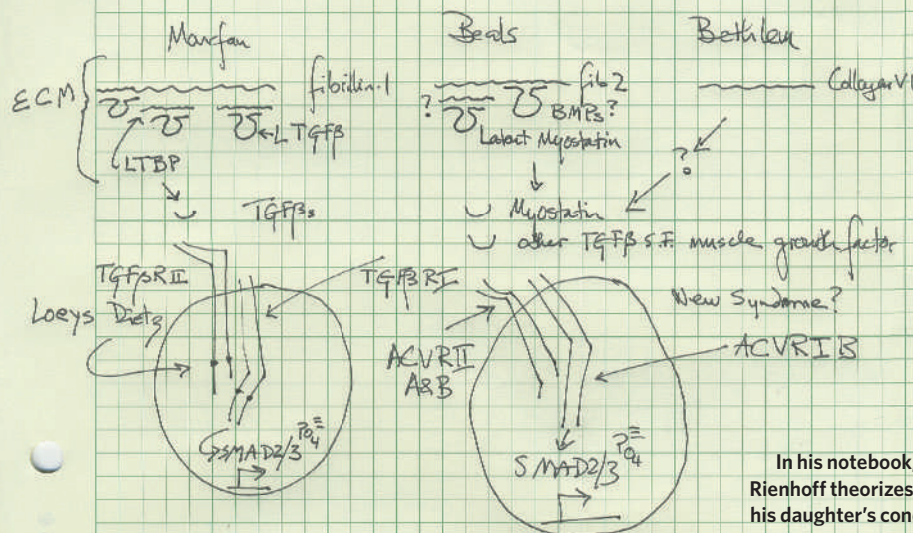 Marfan
Beals
Bethlem
ECM
fibrillin-1
LTGFβ
LTBP
TGFβs
fib 2
?
BMPs?
Latent Myostatin
Collagen VI
?
Myostatin
other TGFβ S.F. muscle growth factor
TGFβR II
TGFβR I
New Syndrome?
Loeys Dietz
ACVR II
A&B
ACVR I B
SMAD2/3 PO4≡
SMAD2/3 PO4≡
In his notebook
Rienhoff theorizes
his daughter's con